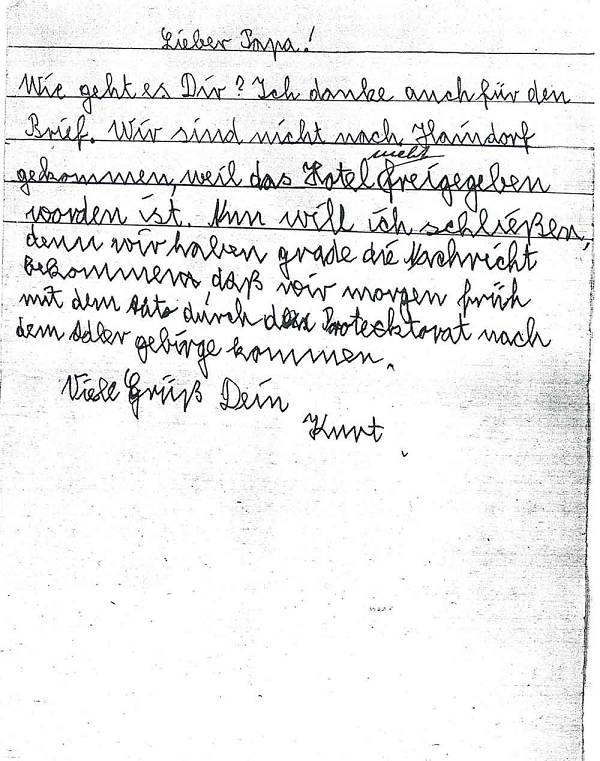 Lieber Papa!
Wie geht es Dir? Ich danke auch für den
Brief. Wir sind nicht nach Haindorf
nicht
gekommen, weil das Hotel freigegeben
worden ist. Nun will ich schließen,
denn wir haben grade die Nachricht
bekommen, daß wir morgen früh
mit dem Auto durch das Protecktorat nach
dem Adlergebirge kommen.
Viele Grüß Dein
Kurt